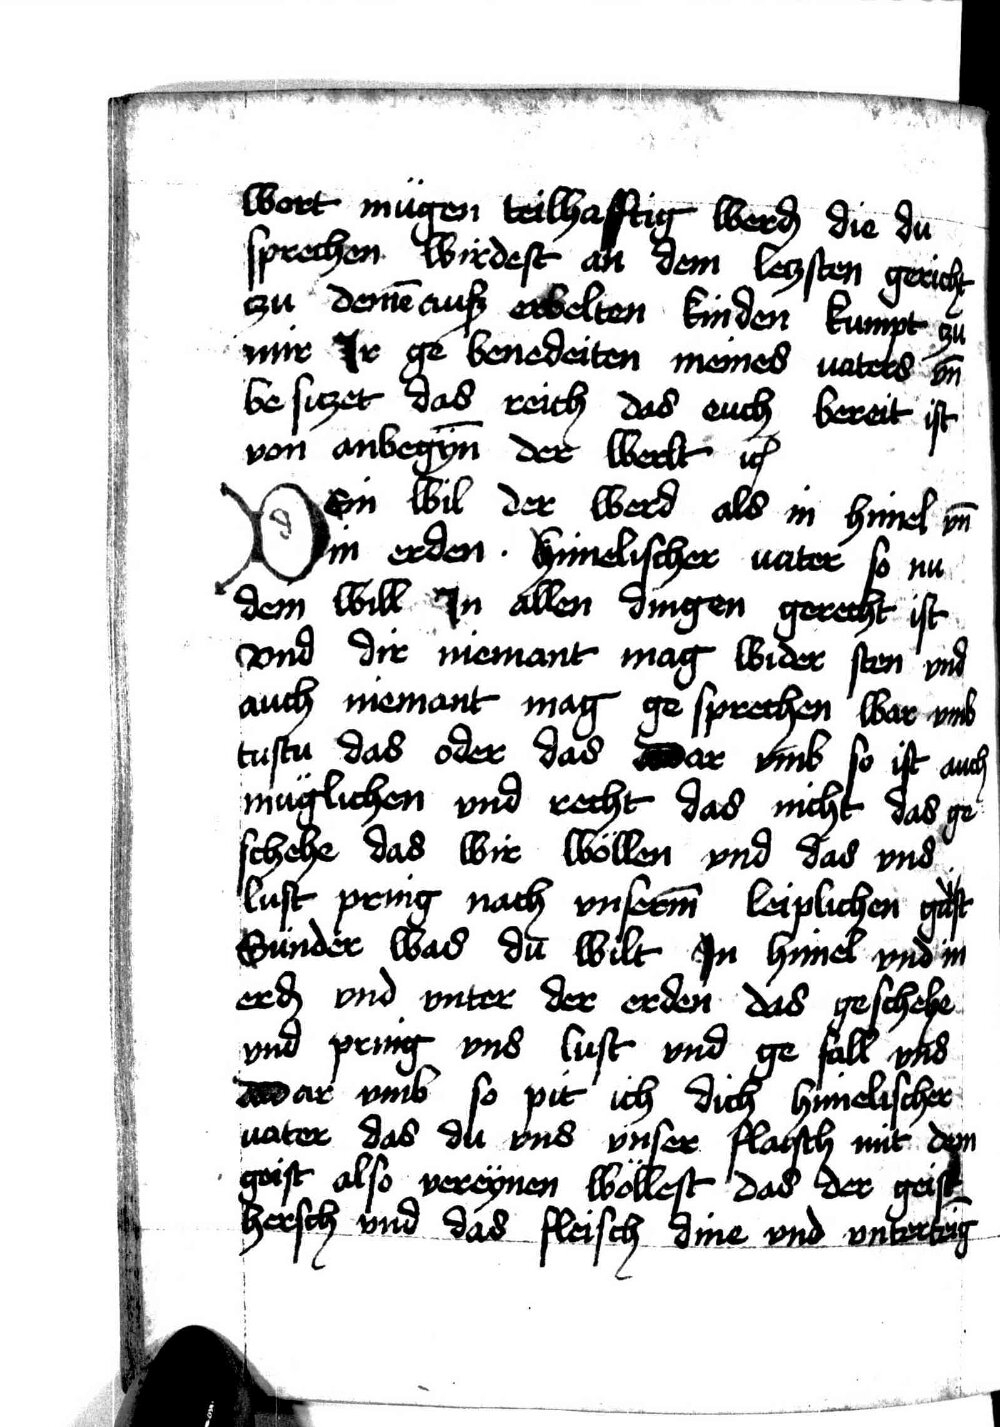 wort mügen teilhafftig werdn die du
sprechen wirdest an dem letzsten gericht
tzu deinē außerbelten kinden kumpt zu
mir Ir ge benedeiten meines vaters vn̄
be sitzet das reich das euch bereit ist
von anbegyn̄ der werlt ich
Dein wil der werd als in himel vn̄
in erden . himelischer vater so nu
dem will In allen dingen gerecht ist
vnd dir niemant mag wider sten vnd
auch niemant mag ge sprechen war vmb
tustu das oder das dar vmb so ist auch
müglichen vnd recht das nicht das ge
schehe das wir wöllen vnd das vns
lust pring nach vnserm̄ leiplichen
Sünder was du wilt In himel vnd in
erdn vnd vnter der erden das geschehe
vnd pring vns lust vnd ge fall vns
dar vmb so pit ich dich himelischer
vater das du vns vnser flaisch mit dem
geist also vereynen wöllest das der geist
hersch vnd das fleisch dine vnd vntertēig